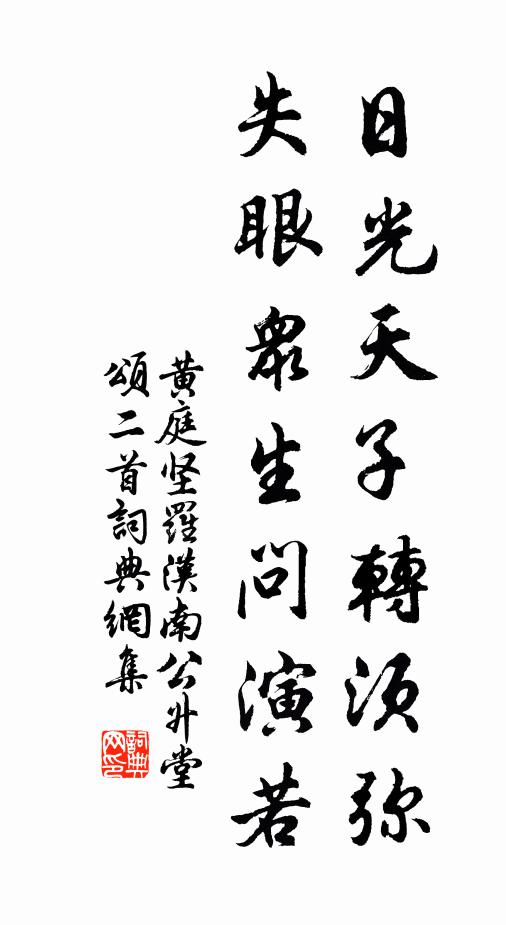 日光天子轉須弥
失眼眾生問演若
黄庭坚羅漢南公升堂
頌二首詞典網集
詞典
网印